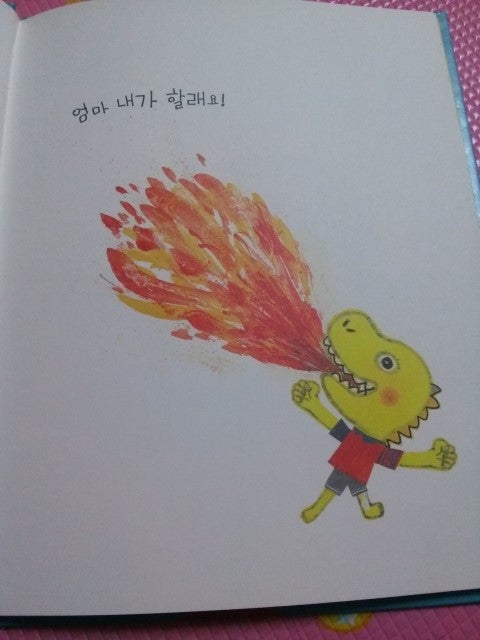 엄마 내가 할래요!